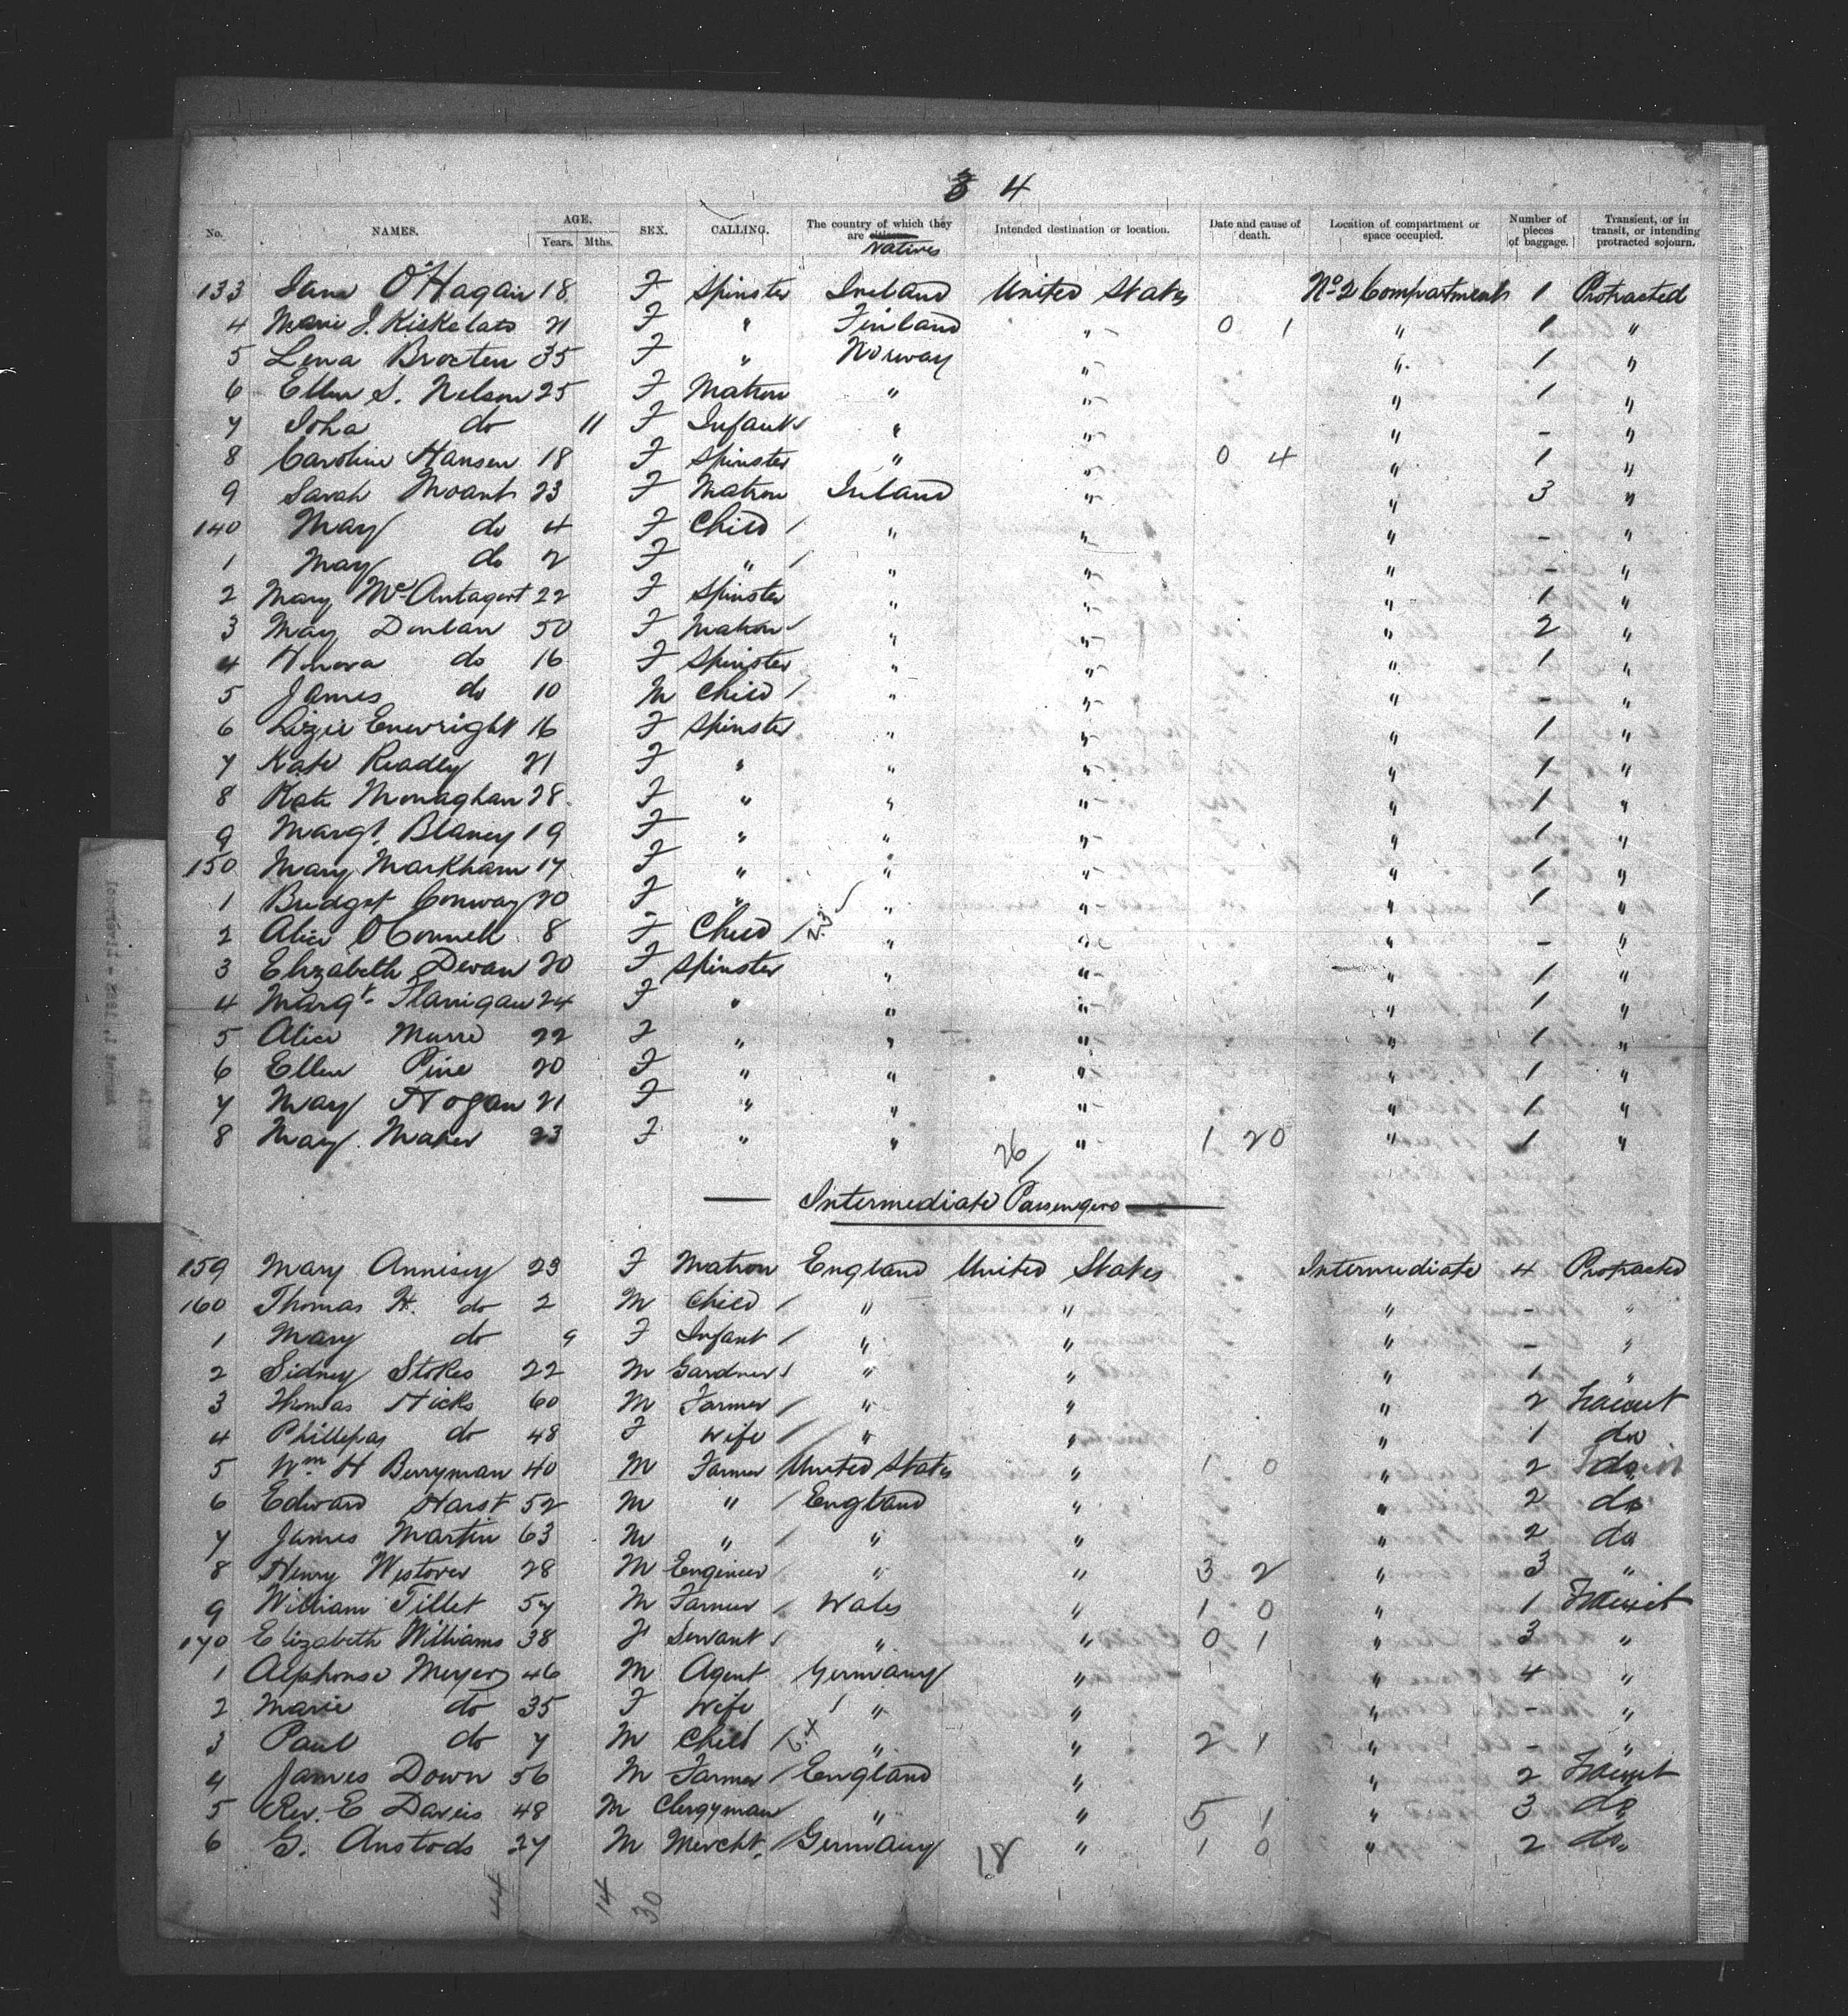 3 4
No. NAMES. AGE. Years. Mths. SEX. CALLING. The country of which they are citizens Natives Intended destination or location. Date and cause of death. Location of compartment or space occupied. Number of pieces of baggage. Transient, or in transit, or intending protracted sojourn.
133 Jane O'Hagan 18 F Spinster Ireland United States No 2 Compartment 1 Protracted
4 Marie J. Kiskelato 21 F " Finland " 0 1 " 1 "
5 Lena Brocten 35 F " Norway " " 1 "
6 Ellen S. Nelson 25 F Matron " " " 1 "
7 Ioha do 11 F Infant " " " - "
8 Caroline Hansen 18 F Spinster " " 0 4 " 1 "
9 Sarah Moant 23 F Matron Ireland " " 3 "
140 May do 4 F Child / " " " - "
1 May do 2 F " / " " " - "
2 Mary McAntagert 22 F Spinster " " " 1 "
3 May Donlan 50 F Matron " " " 2 "
4 Honora do 16 F Spinster " " " 1 "
5 James do 10 M Child / " " " - "
6 Lizzie Enewright 16 F Spinster " " " 1 "
7 Kate Readey 21 F " " " " 1 "
8 Kate Monaghan 28 F " " " " 1 "
9 Margt. Blaney 19 F " " " " 1 "
150 Mary Markham 17 F " " " " 1 "
1 Bridget Conway 20 F " " " " 1 "
2 Alice O'Connell 8 F Child / 23 " " " - "
3 Elizabeth Devan 20 F Spinster " " " 1 "
4 Margt. Flanigan 24 F " " " " 1 "
5 Alice Murre 22 F " " " " 1 "
6 Ellen Pine 20 F " " " " 1 "
7 May Hogan 21 F " " " " 1 "
8 May Maher 23 F " " " 1 20 " 1 "
26
Intermediate Passengers
159 Mary Annisey 23 F Matron England United States Intermediate 4 Protracted
160 Thomas H. do 2 M Child / " " " - "
1 Mary do 9 F Infant / " " " - "
2 Sidney Stokes 22 M Gardner / " " " 1 "
3 Thomas Hicks 60 M Farmer / " " " 2 Transit
4 do 48 F Wife / " " " 1 do
5 Wm H Berryman 40 M Farmer United States " 1 0 " 2 do
6 Edward Harst 52 M " / England " " 2 do
7 James Martin 63 M " / " " " 2 do
8 Henry Westover 28 M Engineer / " " 3 2 " 3 "
9 William Tillet 57 M Farmer / Wales " 1 0 " 1 Transit
170 Elizabeth Williams 38 F Servant / " " 0 1 " 3 "
1 Alphonse Meyer 46 M Agent Germany " " 4 "
2 Marie do 35 F Wife / " " " - "
3 Paul do 7 M Child / " " 2 1 " - "
4 James Down 56 M Farmer / England " " 2 Transit
5 Rev. E Davies 48 M Clergyman " " 5 1 " 3 do
6 G. Anstods 27 M Mercht. / Germany " 1 0 " 2 do
18
44 14 30